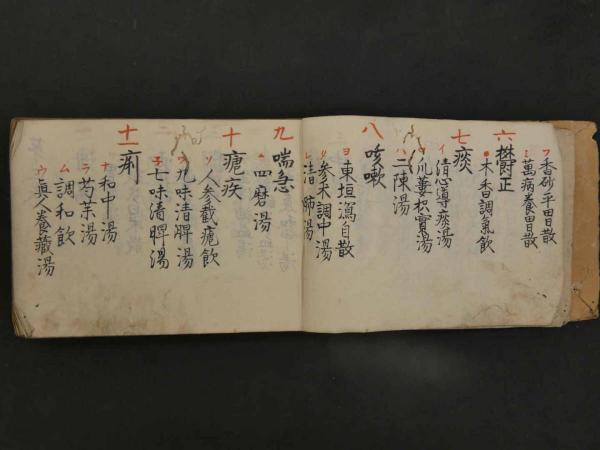 フ 香砂平胃散
ミ 萬病養胃散
六 欝正
● 木香調氣飲
七 痰
イ 清心導痰湯
ロ 瓜蔞枳實湯
ハ 二陳湯
八 咳嗽
ヨ 東垣瀉白散
リ 参朮調中湯
レ 清肺湯
九 喘急
ニ 四磨湯
十 瘧疾
ソ 人参截瘧飲
ツ 九味清脾湯
子 七味清脾湯
十一 痢
ナ 和中湯
ラ 芍薬湯
ム 調和飲
ウ 真人養臓湯